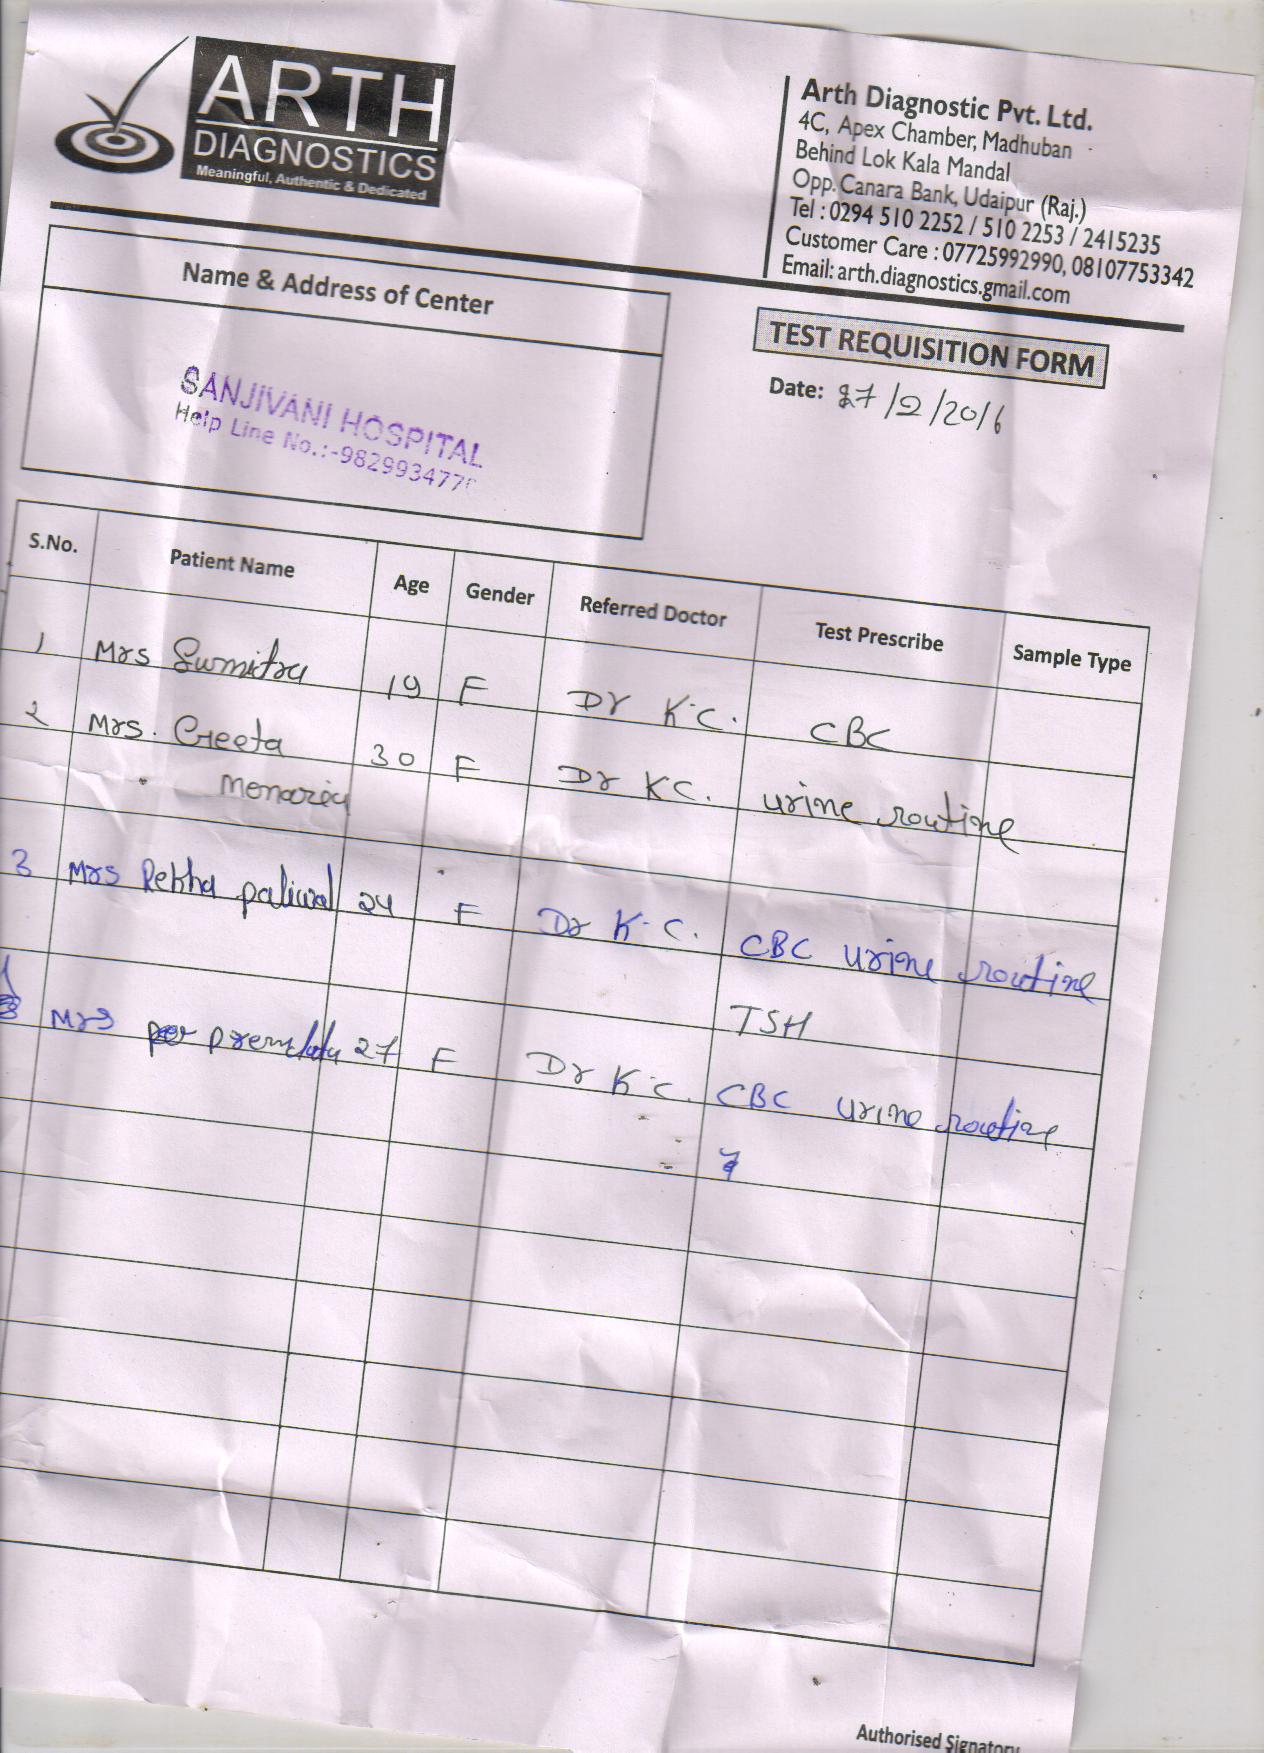 ARTH
DIAGNOSTICS
Meaningful, Authentic & Dedicated
Arth Diagnostic Pvt. Ltd.
4C, Apex Chamber, Madhuban
Behind Lok Kala Mandal
Opp. Canara Bank, Udaipur (Raj.)
Tel : 0294 510 2252 / 510 2253 / 2415235
Customer Care : 07725992990, 08107753342
Email: arth.diagnostics.gmail.com
Name & Address of Center
SANJIVANI HOSPITAL
Help Line No.:-982993477
TEST REQUISITION FORM
Date: 27/2/2016
S.No. Patient Name Age Gender Referred Doctor Test Prescribe Sample Type
1 Mrs Sumitra 19 F Dr K.C. CBC
2 Mrs. Geeta 30 F Dr KC. urine routine
Menaria
3 Mrs Rekha paliwal 24 F Dr K.C. CBC urine routine
TSH
Mrs premlata 27 F Dr K.C. CBC urine routine
Authorised Signatory